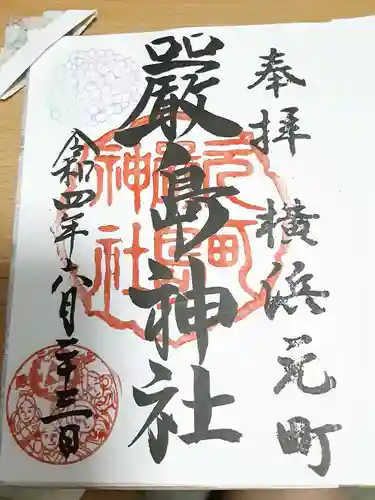 奉拝 横浜元町
嚴島神社
令和四年八月二十三日
元町
嚴島
神社